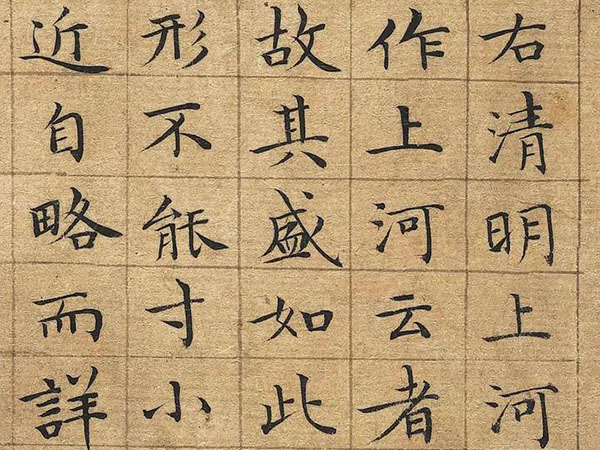 右清明上河
作上河云者
故其盛如此
形不能寸小
近自略而詳